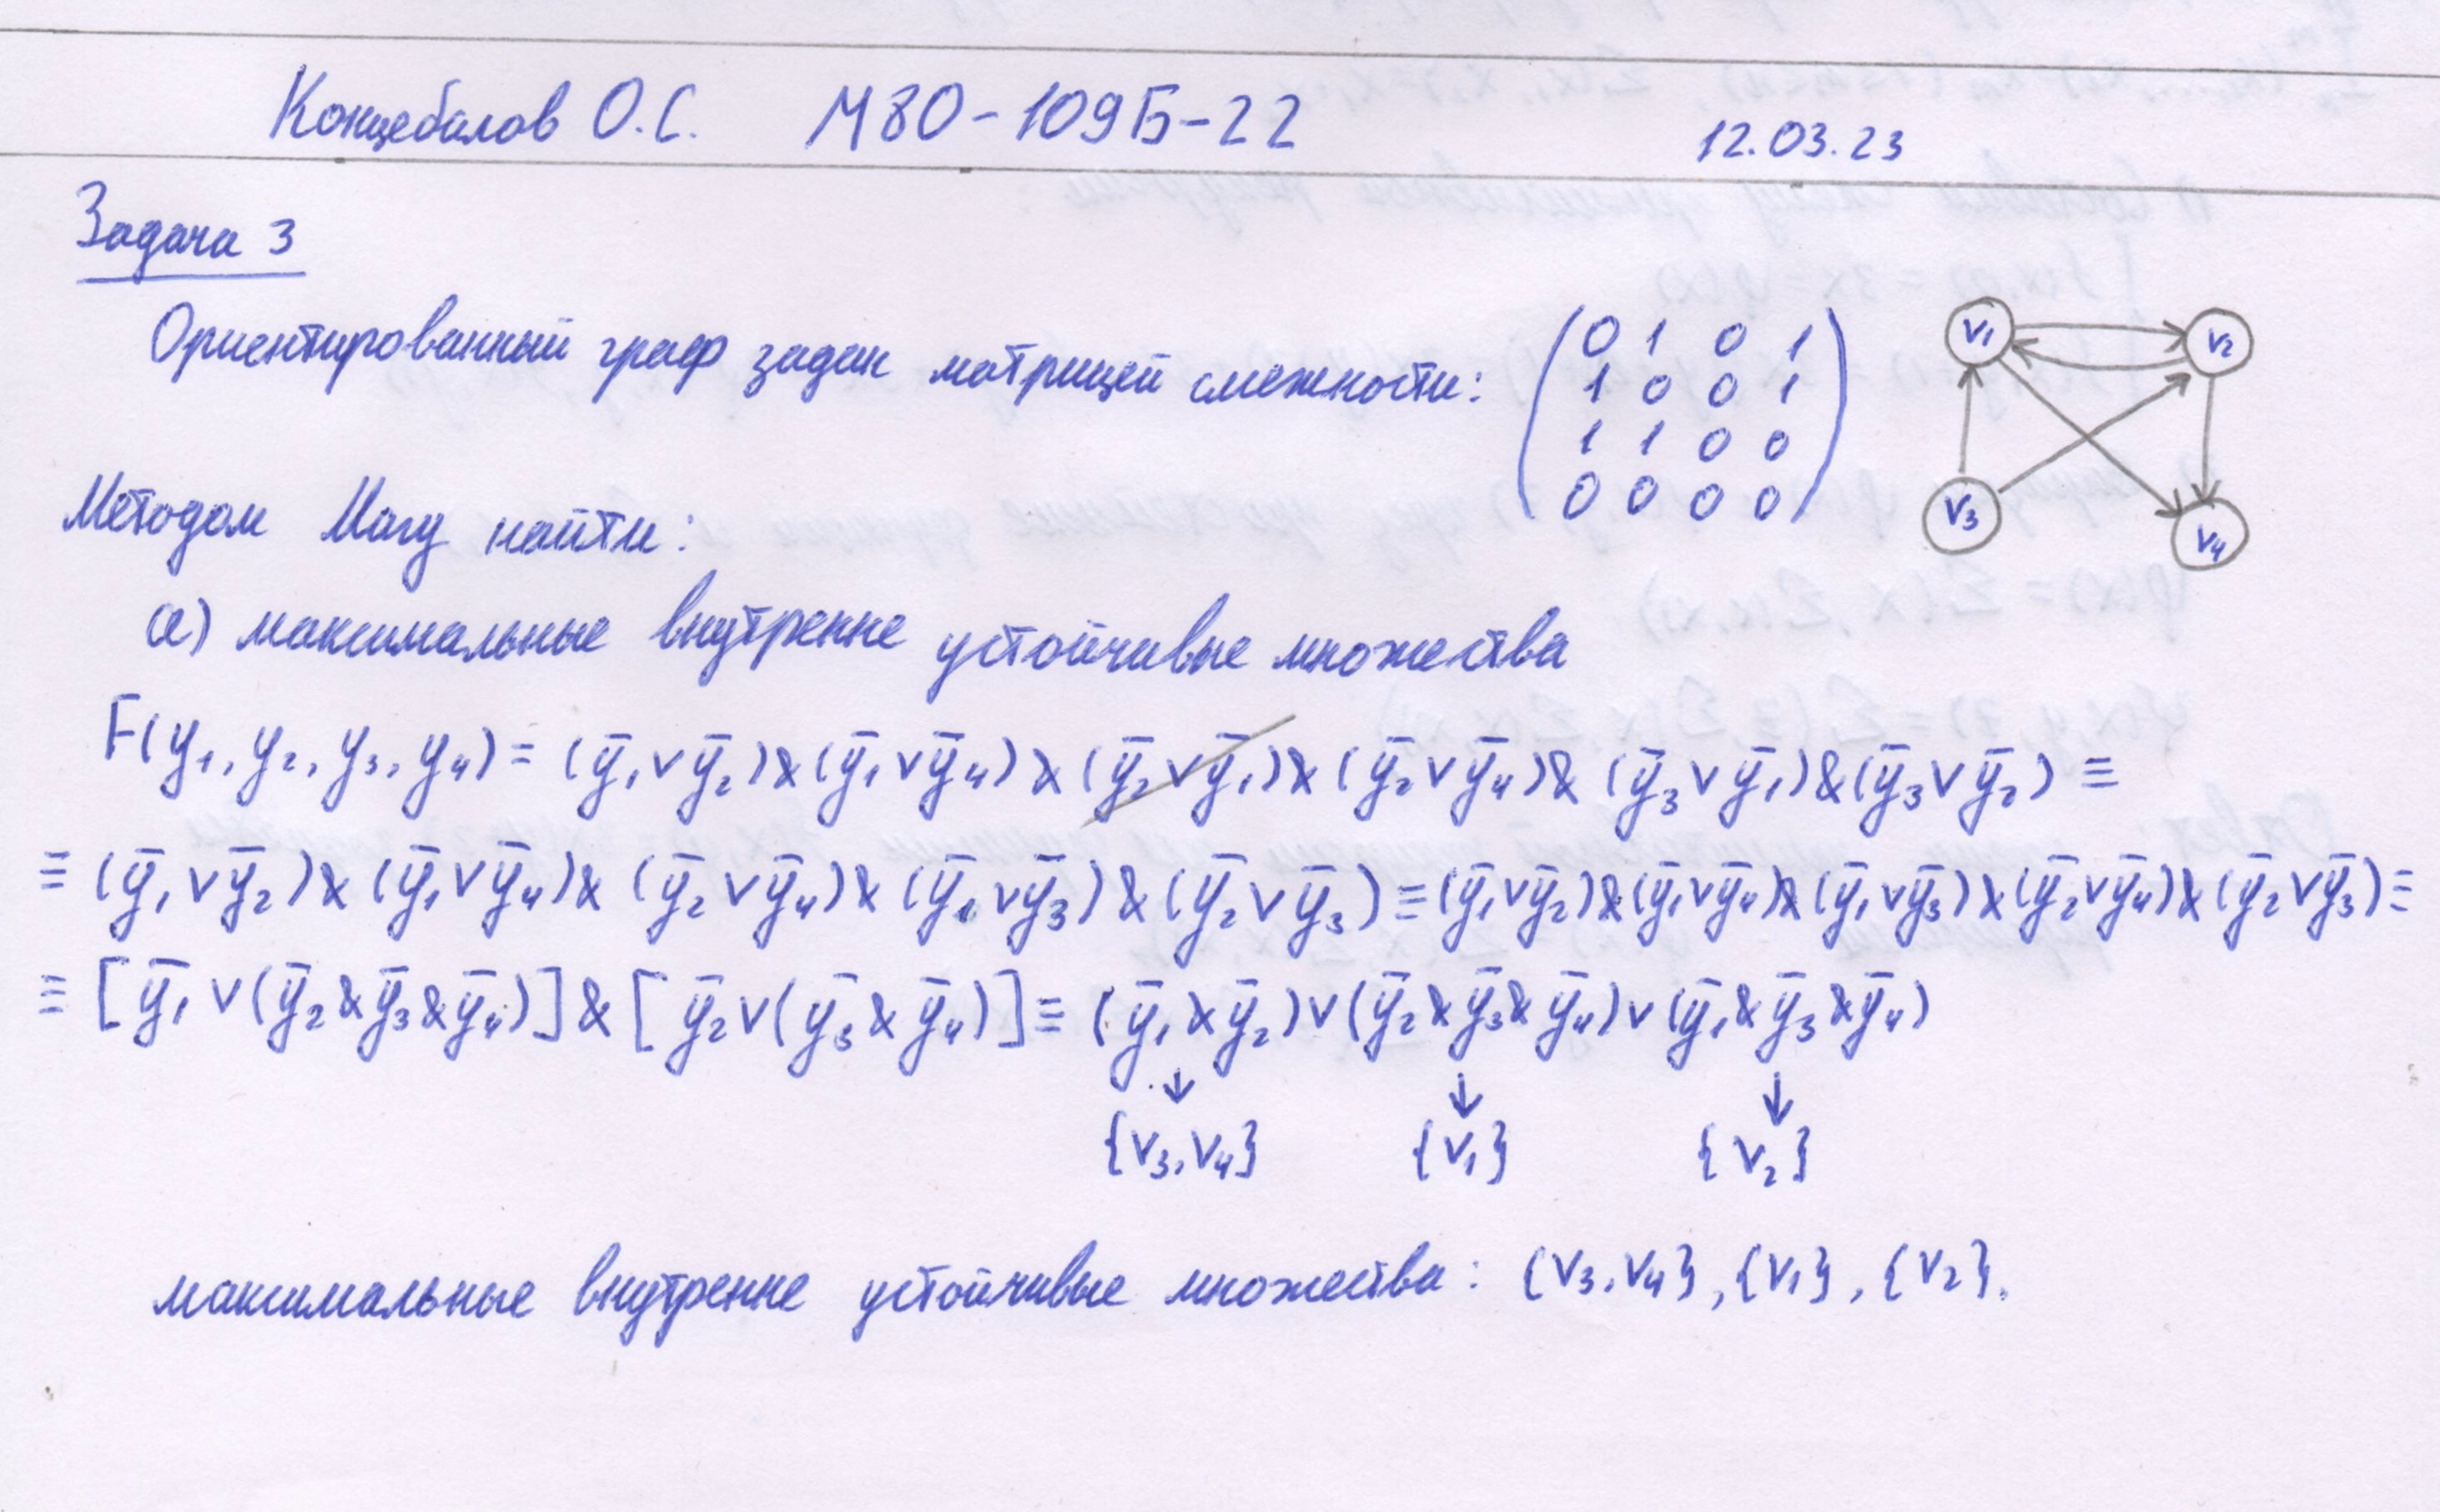 Концебалов О.С. М80-109Б-22 12.03.23
Задача 3
Ориентированный граф задан матрицей смежности:
0 1 0 1
1 0 0 1
1 1 0 0
0 0 0 0
V1 V2
V3 V4
Методом Магу найти:
а) максимальные внутренне устойчивые множества
F(y₁, y₂, y₃, y₄) = (ȳ₁ ∨ ȳ₂) & (ȳ₁ ∨ ȳ₄) & (ȳ₂ ∨ ȳ₁) & (ȳ₂ ∨ ȳ₄) & (ȳ₃ ∨ ȳ₁) & (ȳ₃ ∨ ȳ₂) ≡
≡ (ȳ₁ ∨ ȳ₂) & (ȳ₁ ∨ ȳ₄) & (ȳ₂ ∨ ȳ₄) & (ȳ₁ ∨ ȳ₃) & (ȳ₂ ∨ ȳ₃) ≡ (ȳ₁ ∨ ȳ₂) & (ȳ₁ ∨ ȳ₄) & (ȳ₁ ∨ ȳ₃) & (ȳ₂ ∨ ȳ₄) & (ȳ₂ ∨ ȳ₃) ≡
≡ [ȳ₁ ∨ (ȳ₂ & ȳ₃ & ȳ₄)] & [ȳ₂ ∨ (ȳ₃ & ȳ₄)] ≡ (ȳ₁ & ȳ₂) ∨ (ȳ₂ & ȳ₃ & ȳ₄) ∨ (ȳ₁ & ȳ₃ & ȳ₄)
↓ ↓ ↓
{V₃, V₄} {V₁} {V₂}
максимальные внутренне устойчивые множества: {V₃, V₄}, {V₁}, {V₂}.